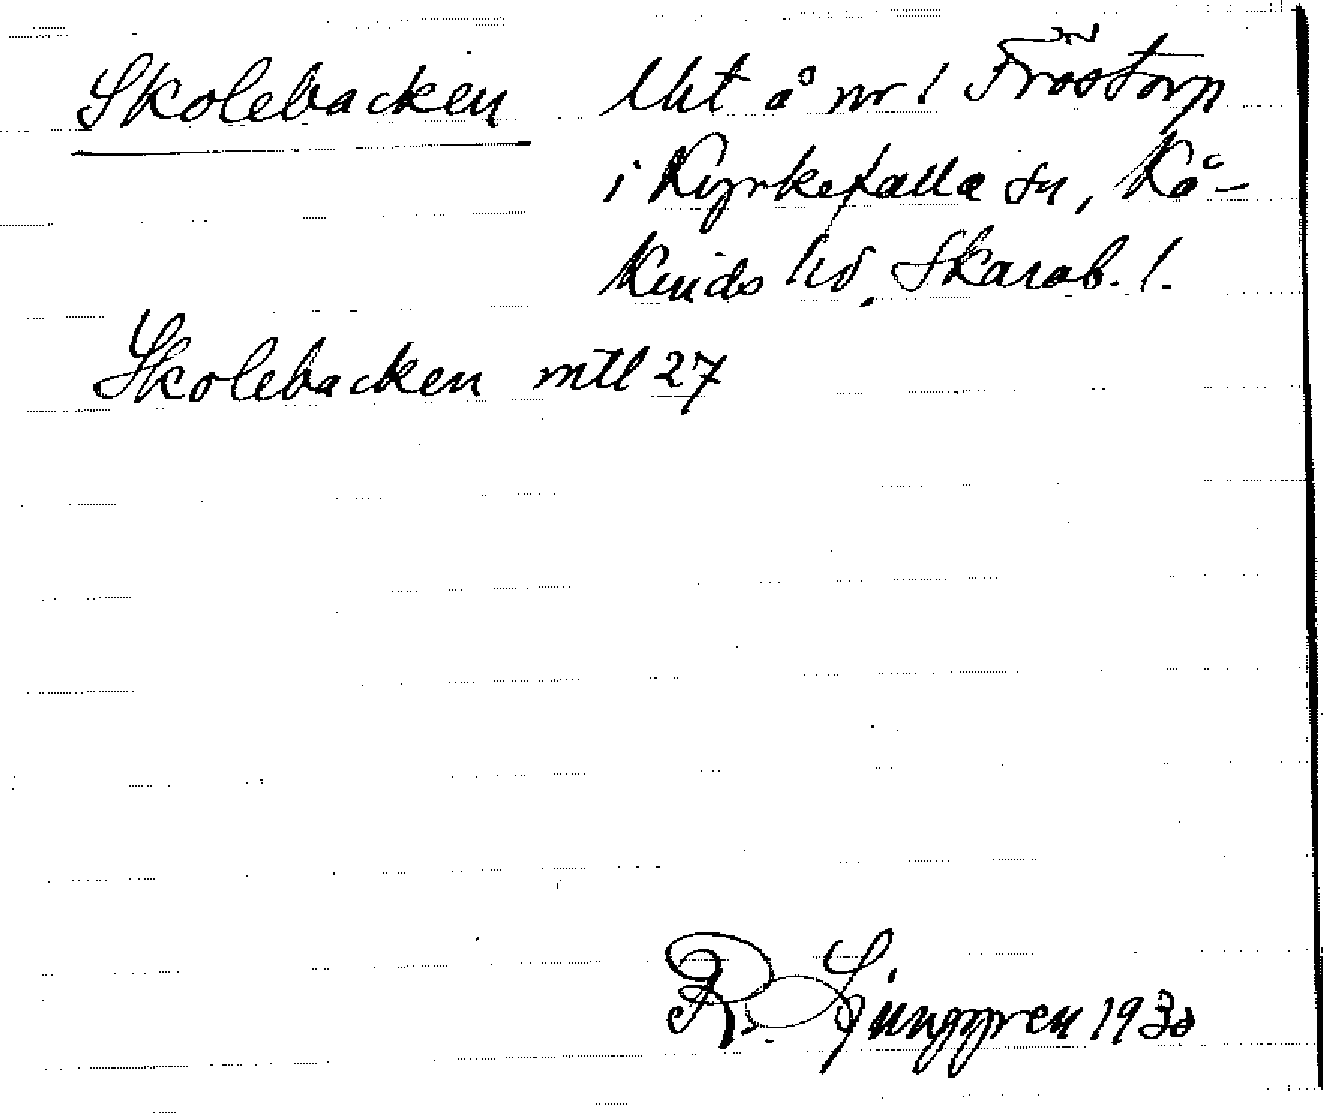 Skolebacken Utt å nr 1 Fröstorp
i Kyrkefalla sn, Kå-
kinds hd, Skarab. l.
Skolebacken mtl 27
R. Ljunggren 1930